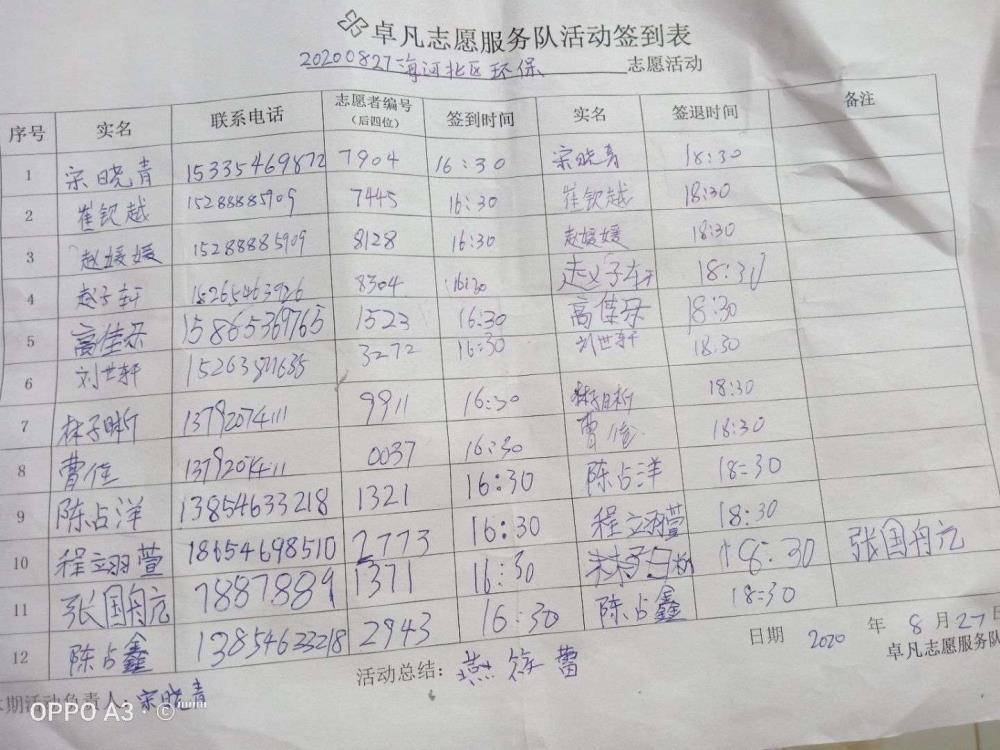 卓凡志愿服务队活动签到表
20200827海河北区环保 志愿活动
序号 实名 联系电话 志愿者编号（后四位） 签到时间 实名 签退时间 备注
1 宋晓青 15335469872 7904 16:30 宋晓青 18:30
2 崔钦越 15288885909 7445 16:30 崔钦越 18:30
3 赵媛媛 15288885909 8128 16:30 赵媛媛 18:30
4 赵子轩 15265463926 8304 16:30 赵子轩 18:30
5 高佳朵 15865369765 1523 16:30 高佳朵 18:30
6 刘世轩 3272 16:30 刘世轩 18:30
7 林子晰 13792074111 9911 16:30 林子晰 18:30
8 曹佳 13792074111 0037 16:30 曹佳 18:30
9 陈占洋 13854633218 1321 16:30 陈占洋 18:30
10 程立翊萱 18654698510 2773 16:30 程立翊萱 18:30
11 张国舟元 7887889 1371 16:30 18:30 张国舟元
12 陈占鑫 13854633218 2943 16:30 陈占鑫 18:30
日期 2020 年 8 月 27 日
本期活动负责人：宋晓青 活动总结： 燕 蕾 卓凡志愿服务队
OPPO A3 · ©